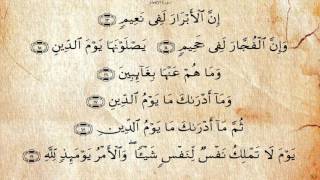 إِنَّ ٱلْأَبْرَارَ لَفِى نَعِيمٍ ۝
وَإِنَّ ٱلْفُجَّارَ لَفِى جَحِيمٍ ۝ يَصْلَوْنَهَا يَوْمَ ٱلدِّينِ ۝
وَمَا هُمْ عَنْهَا بِغَآئِبِينَ ۝
وَمَآ أَدْرَىٰكَ مَا يَوْمُ ٱلدِّينِ ۝
ثُمَّ مَآ أَدْرَىٰكَ مَا يَوْمُ ٱلدِّينِ ۝
يَوْمَ لَا تَمْلِكُ نَفْسٌ لِّنَفْسٍ شَيْـًٔا ۖ وَٱلْأَمْرُ يَوْمَئِذٍ لِّلَّهِ ۝